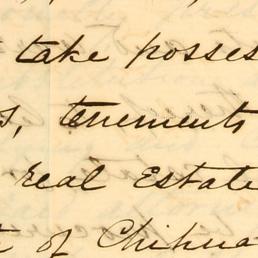 take posses
s, tenements
real Estate
of Chihua